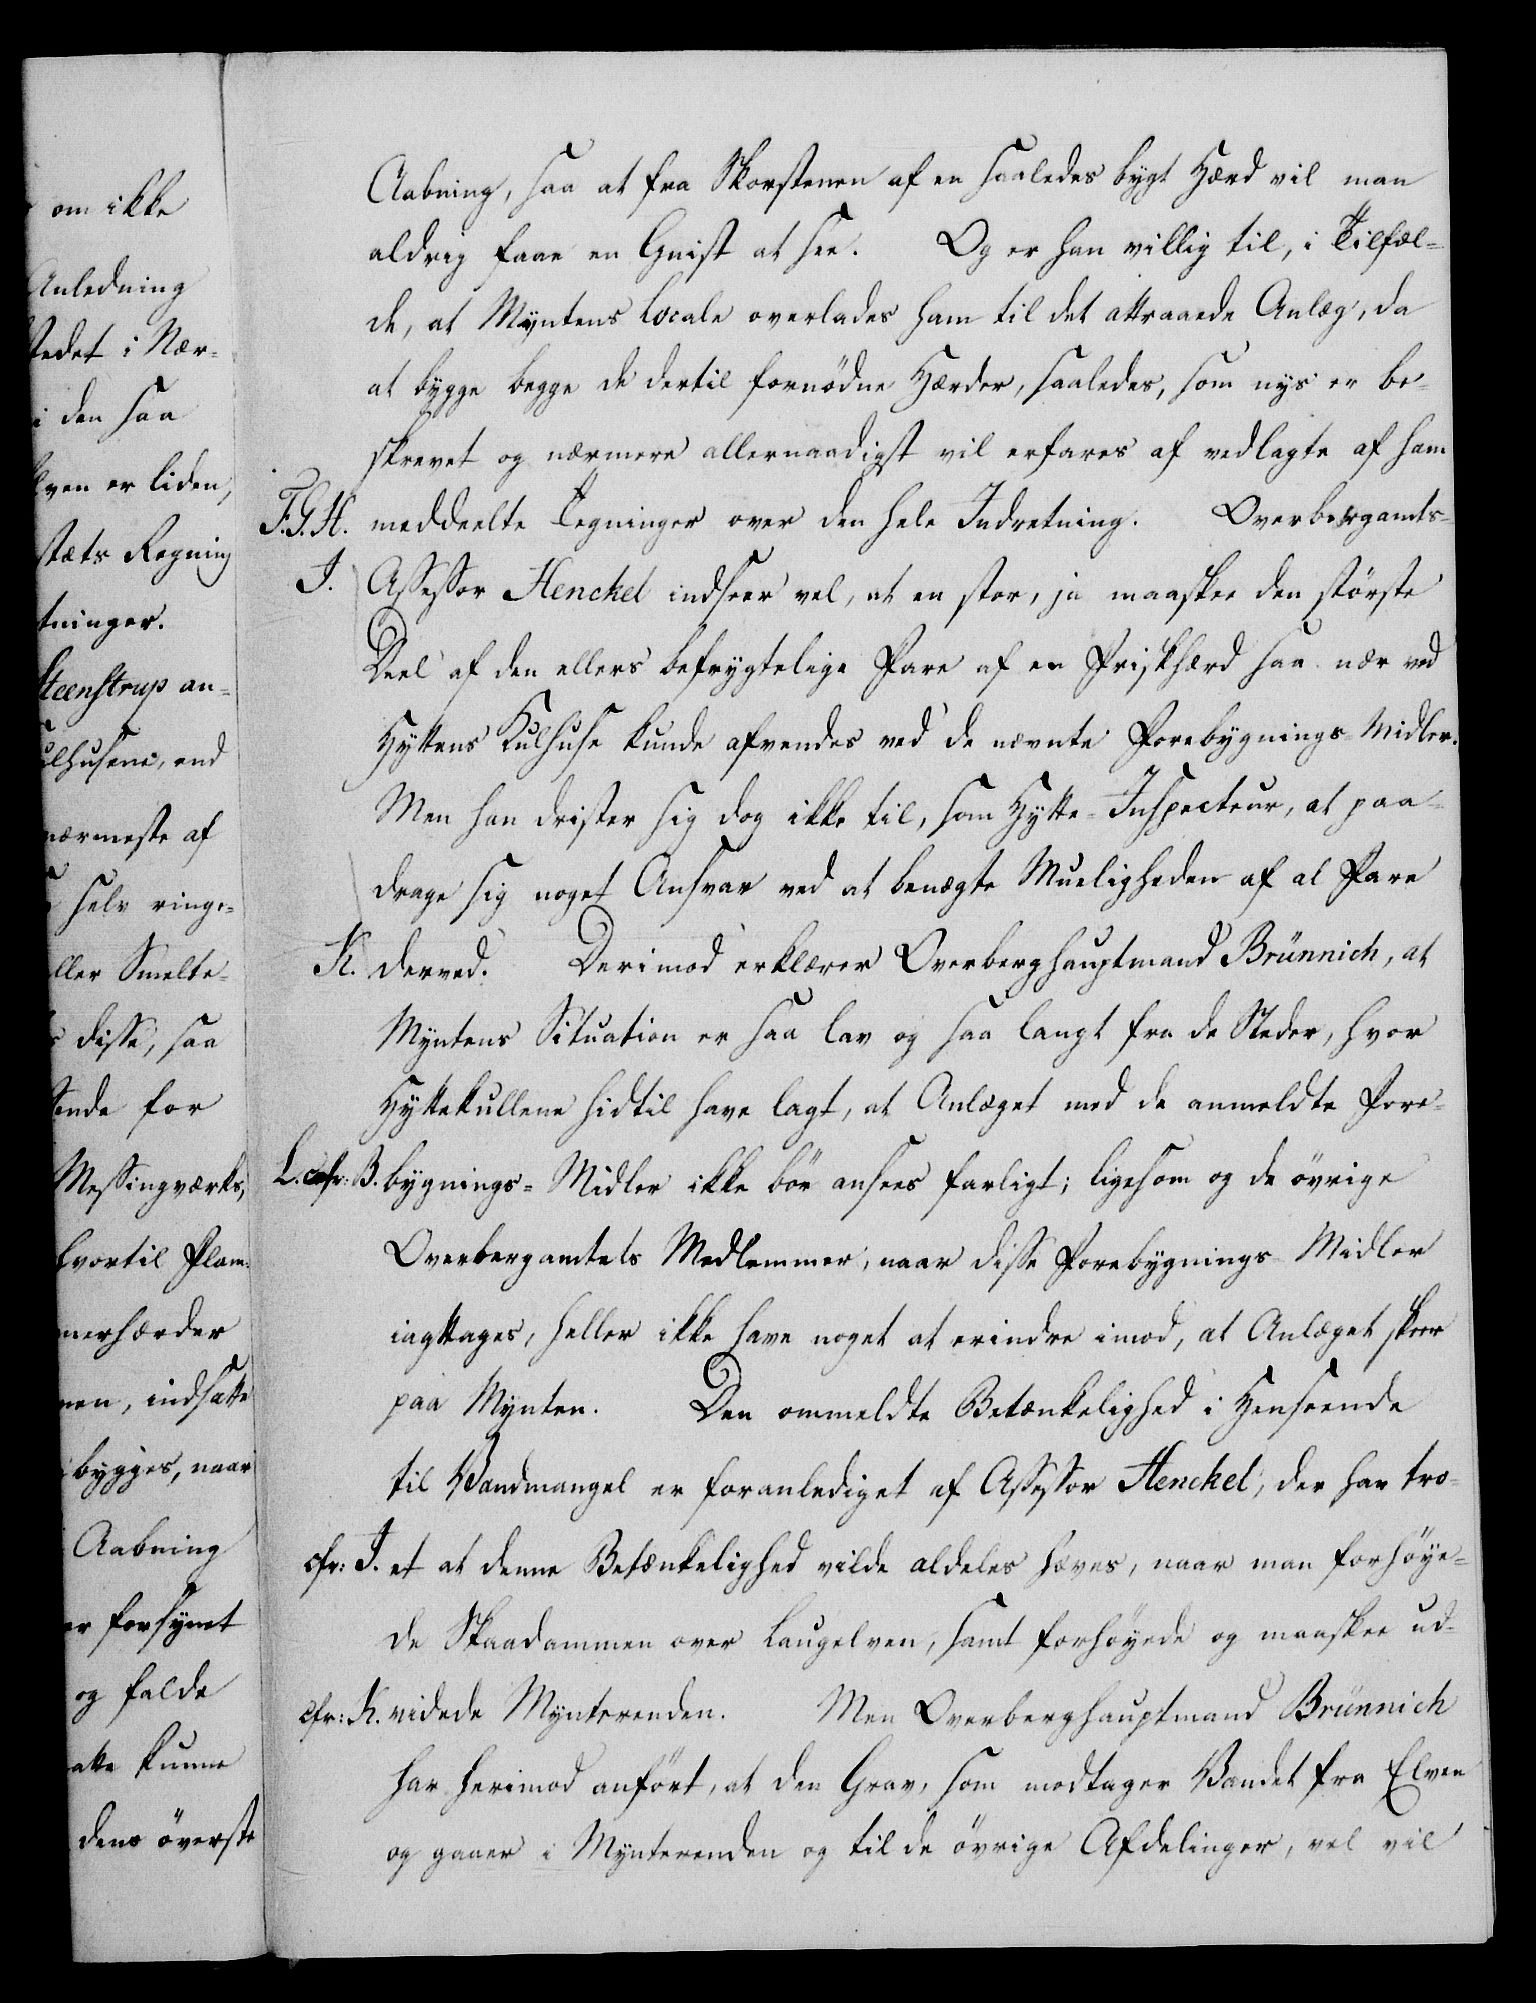 om ikke
Anledning
stedet i Nær-
i den saa
lven er liden,
stæts Regning
tninger.
Steenstrup an-
ulhusene, end
nærmeste af
selv ringe-
ller Smelte-
disse, saa
sende for
Messingværks,
hvortil Flam-
merhærder
nen, indsatte
bygges, naar
Aabning
er forsynet
og falde
atte kunne
dens överste
Aabning, saa at fra Skorstenen af en saaledes bygt Hærd vil man
aldrig faae en Gnist at see. Og er han villig til, i Tilfæl-
de, at Myntens Locale overlades ham til det attraaede Anlæg, da
at bygge begge de dertil fornödne Hærder, saaledes, som nys er be-
skrevet og nærmere allernaadigst vil erfares af vedlagte af ham
F.G.H. meddeelte Tegninger over den hele Indretning. Overbergamts-
I. Assessor Henckel indseer vel, at en stor, ja maaskee den störste
Deel af den ellers befrygtelige Fare af en Friskhærd saa nær ved
Hyttens Kulhuse kunde afvendes ved de nævnte Forebygnings-Midler.
Men han drister sig dog ikke til, som Hytte-Inspecteur, at paa-
drage sig noget Ansvar ved at benægte Mueligheden af al Fare
K. derved. Derimod erklærer Overberghauptmand Brünnich, at
Myntens Situation er saa lav og saa langt fra de Steder, hvor
Hyttekullene hidtil have lagt, at Anlæget med de anmeldte Fore-
L. cfr: B. bygnings-Midler ikke bör ansees farligt; ligesom og de övrige
Overbergamtets Medlemmer, naar disse Forebygnings Midler
iagttages, heller ikke have noget at erindre imod, at Anlæget skeer
paa Mynten. Den ommeldte Betænkelighed i Henseende
til Vandmangel er foranlediget af Assessor Henckel, der har tro-
cfr: I. et at denne Betænkelighed vilde aldeles hæves, naar man forhöye-
de Skaadammen over Laugelven, samt forhöyede og maaskee ud-
cfr: K. videde Mynterenden. Men Overberghauptmand Brünnich
har herimod anfört, at den Grav, som modtager Vandet fra Elven
og gaaer i Mynterenden og til de övrige Afdelinger, vel vil